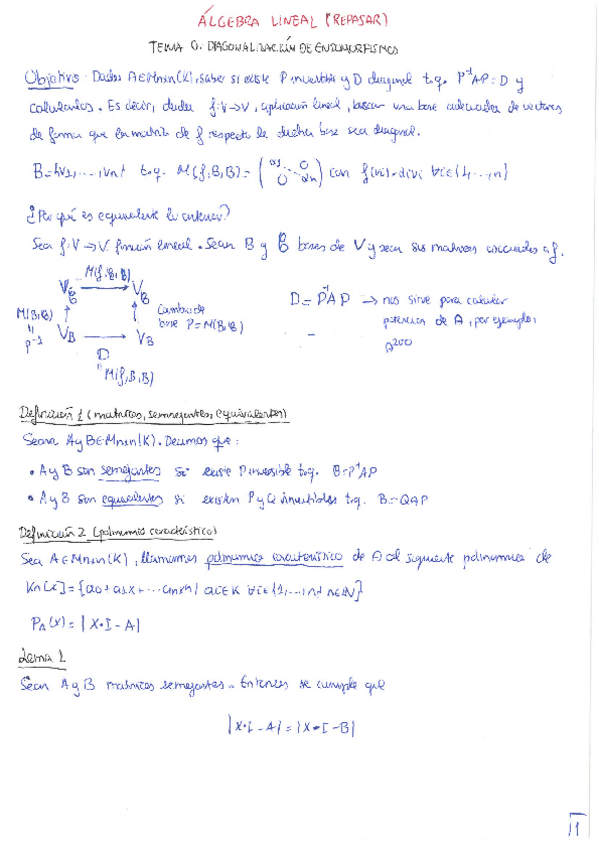 ÁLGEBRA LINEAL (REPASAR)
TEMA 0. DIAGONALIZACIÓN DE ENDOMORFISMOS
Objetivo: Dados A∈Mnxn(K), saber si existe P invertible y D diagonal t.q. P⁻¹AP = D y
calcularlos. Es decir, dada f:V→V, aplicación lineal, buscar una base adecuada de vectores
de forma que la matriz de f respecto de dicha base sea diagonal.
B={v1,...,vn} t.q. M(f,B,B) = con f(vi)=divi ∀i∈{1,...,n}
¿Por qué es equivalente lo anterior?
Sea f:V→V función lineal. Sean B y B bases de V y sean sus matrices asociadas a f.
M(f,B,B)
VB → VB
D = P⁻¹AP → nos sirve para calcular
potencias de A, por ejemplo,
A²⁰⁰
M(B,B)
P⁻¹
Cambio de
base P=M(B,B)
VB → VB
D
M(f,B,B)
Definición 1 (matrices semejantes, equivalentes)
Sean A y B∈Mnxn(K). Decimos que:
• A y B son semejantes si existe P inversible t.q. B=P⁻¹AP
• A y B son equivalentes si existen P y Q invertibles t.q. B=QAP
Definición 2 (polinomio característico)
Sea A∈Mnxn(K), llamamos polinomio característico de A al siguiente polinomio de
Kn[x]={a0+a1x+...anxⁿ| ai∈K ∀i∈{1,...,n} n∈N}
PA(x)=|x·I-A|
Lema 1
Sean A y B matrices semejantes. Entonces se cumple que
|x·I-A|=|x·I-B|
1